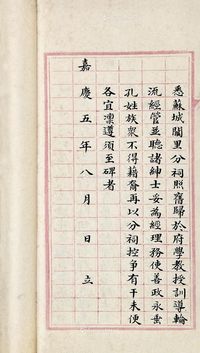 悉蘇城闕里分祠照舊歸於府學教授訓導輪
流經管並聽諸紳士妥為經理務使善政永垂
孔姓族衆不得藉裔再以分祠控爭有干未便
各宜凜遵須至碑者
嘉慶五年八月日立